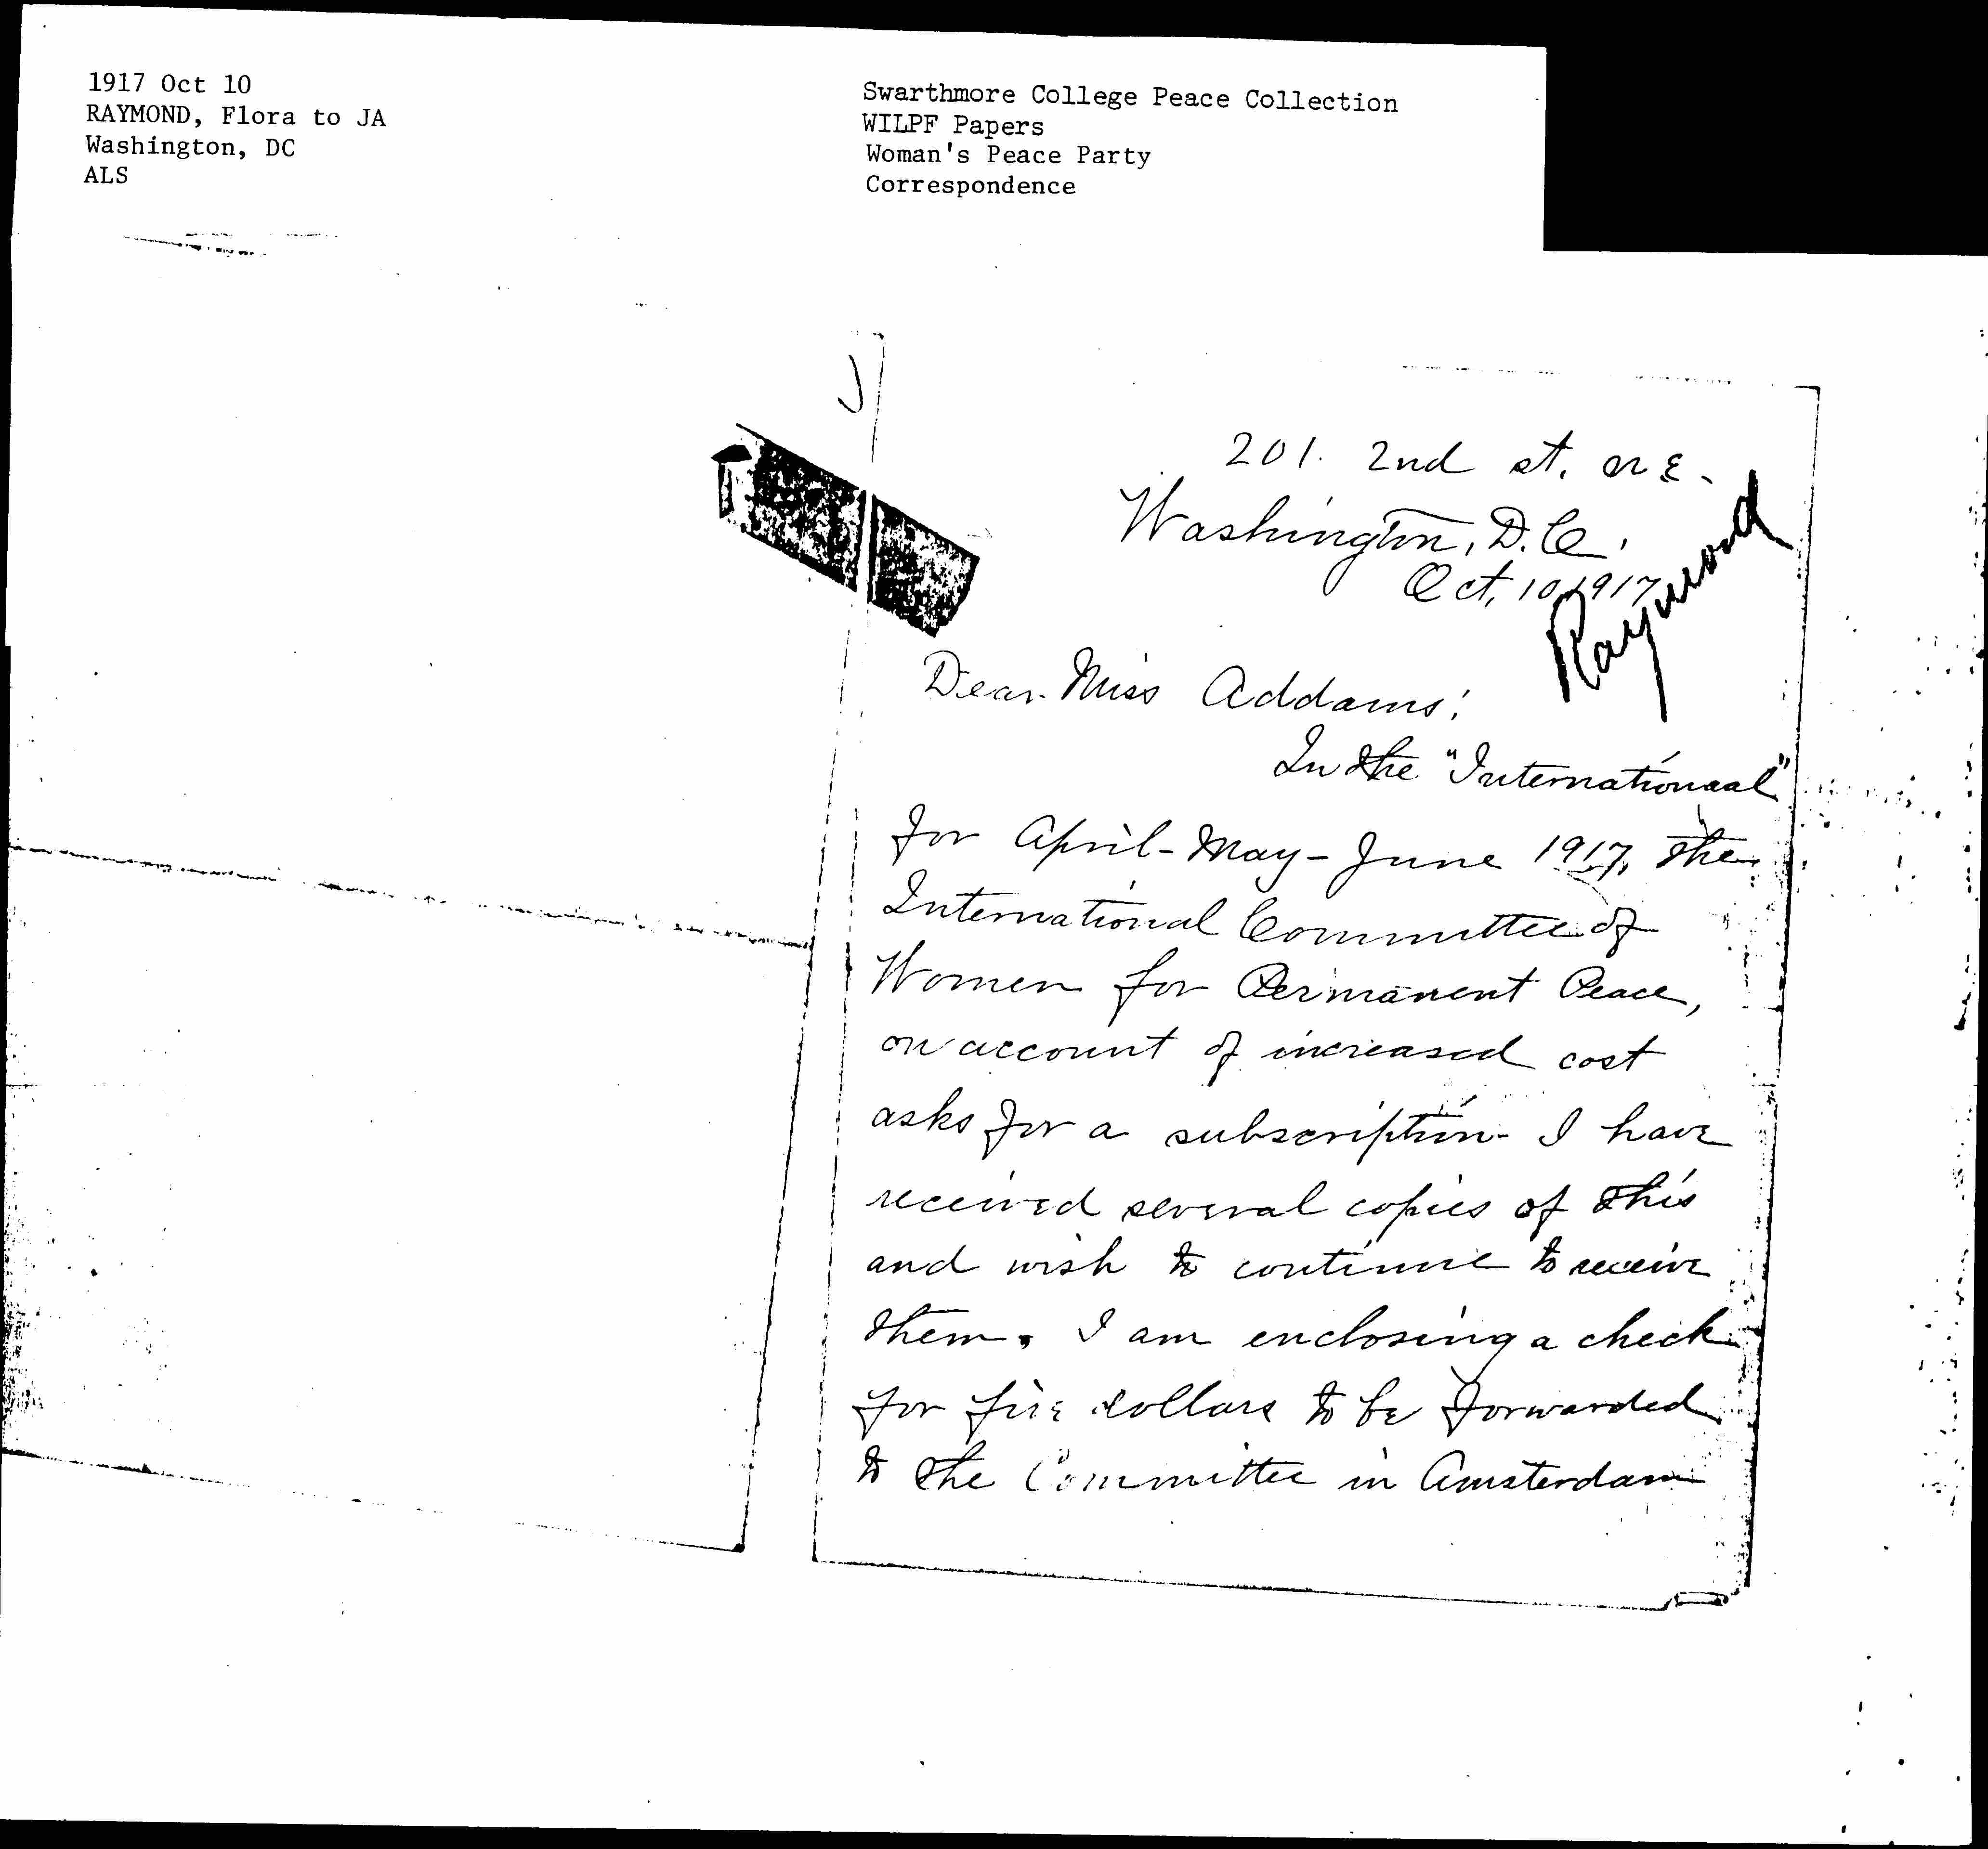 1917 Oct 10
RAYMOND, Flora to JA
Washington, DC
ALS
Swarthmore College Peace Collection
WILPF Papers
Woman's Peace Party
Correspondence
201. 2nd st. N E.
Washington, D.C.
Oct, 10, 1917
Raymond
Dear Miss Addams:
In the "Internationaal"
for April-May-June 1917, the
International Committee of
Women for Permanent Peace,
on account of increased cost
asks for a subscription. I have
received several copies of this
and wish to continue to receive
them. I am enclosing a check
for five dollars to be forwarded
to the Committee in Amsterdam